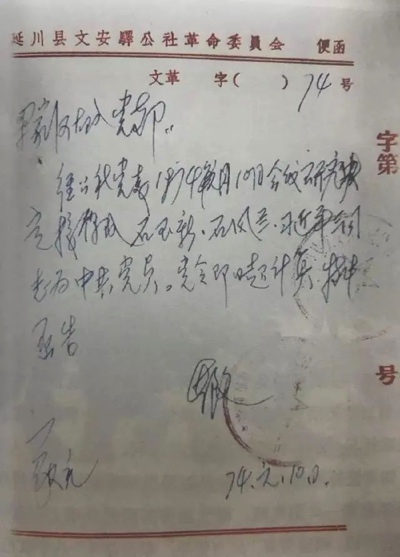 延川县文安驿公社革命委員会 便函
文革 字( ) 74 号
梁家河大队党支部。
经公社党委1974年 月10日会议研究决
定接收 石玉新、石凤兰、习近平 同
志为中共党员。党令即日起计算,特此
函告
74. 元. 10日.
字第
号